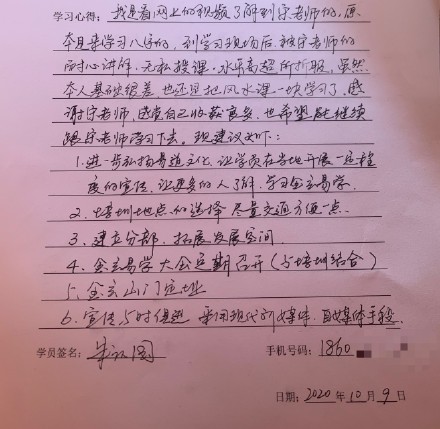 学习心得：我是看网上的视频了解到宋老师的，原
本是来学习八字的，到学习现场后，被宋老师的
耐心讲解，无私授课，水平高超所折服，虽然
本人基础很差，也还是把风水课一块学习了，感
谢宋老师，感觉自己收获良多，也希望能继续
跟宋老师学习下去。现建议如下：
1.进一步弘扬易道文化，让学员在当地开展一定程
度的宣传，让更多的人了解、学习金玄易学。
2.培训地点的选择尽量交通方便一点.
3.建立分部，拓展发展空间.
4.金玄易学大会定期召开（与培训结合）
5.金玄山门定址
6.宣传与时俱进，采用现代新媒体，自媒体手段.
学员签名： 手机号码：1860
日期：2020年10月9日